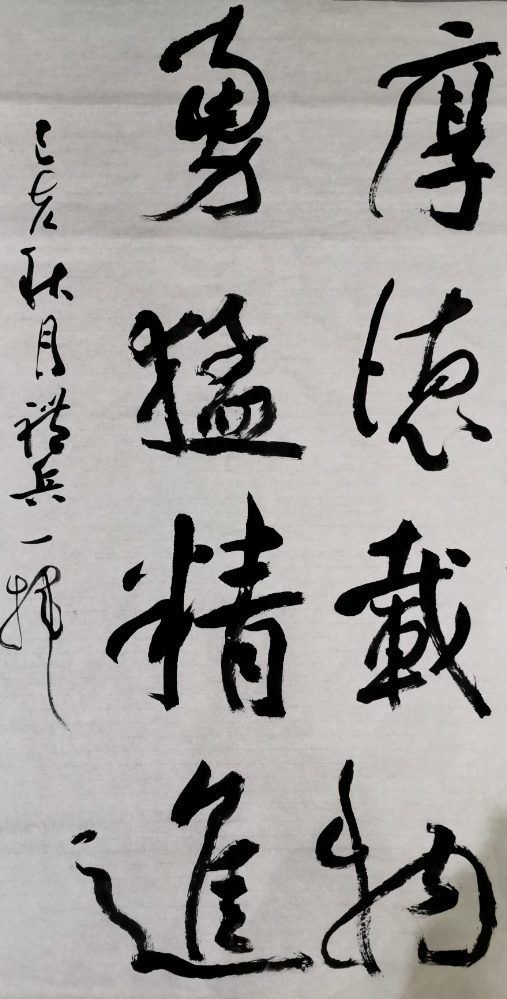 厚德載物
勇猛精進
己亥秋月禮兵一揮